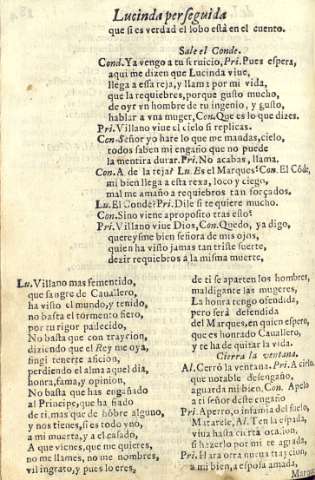 Lucinda perseguida
que si es verdad el lobo està en el cuento.
Sale el Conde.
Cond. Ya vengo a tu seruicio, Pri. Pues espera,
aqui me dizen que Lucinda viue,
llega a essa reja, y llama por mi vida,
que la requiebres, porque gusto mucho,
de oyr vn hombre de tu ingenio, y gusto,
hablar a vna muger, Con. Què es lo que dizes.
Pri. Villano viue el cielo si replicas.
Con. Señor yo harè lo que me mandas, cielo,
todos saben mi engaño que no puede
la mentira durar. Pri. No acabas, llama.
Con. A de la reja? Lu. Es el Marques? Con. El Cōde,
mi bien llega a esta rexa, loco y ciego,
mal me amaño a requiebros tan forçados.
Lu. El Conde? Pri. Dile si te quiere mucho.
Con. Sino viene aproposito tras esto?
Pri. Villano viue Dios, Con. Quedo, ya digo,
quereysme bien señora de mis ojos,
quien ha visto jamas tan triste suerte,
dezir requiebros a la misma muerte,
Lu. Villano mas fementido,
que sangre de Cauallero,
ha visto el mundo, y tenido,
no basta el tormento fiero,
por tu rigor padecido,
No basta que con traycion,
diziendo que el Rey me oya,
fingi tenerte aficion,
perdiendo el alma aquel dia,
honra, fama, y opinion,
No basta que has engañado
al Principe, que ha fiado
de ti, mas que de hōbre alguno,
y nos tienes, si es todo vno,
a mi muerta, y a el casado,
A que vienes, que me quieres,
no me llames, no me nombres,
vil ingrato, y pues lo eres,
de ti se aparten los hombres,
maldigante las mugeres,
La honra tengo ofendida,
pero serà defendida
del Marques, en quien espero,
que es honrado Cauallero,
y te ha de quitar la vida.
Cierra la ventana.
Al. Cerrò la ventana. Pri. A cielo
que notable desengaño,
aguarda mi bien. Con. Apelo
a ti señor deste engaño
Pri. A perro, o infamia del suelo,
Matarele, Al. Ten la espada,
viua hasta cierta ocasion,
si hazerlo por mi te agrada,
Pri. Harà otra nueua traycion,
a mi bien, a esposa amada,